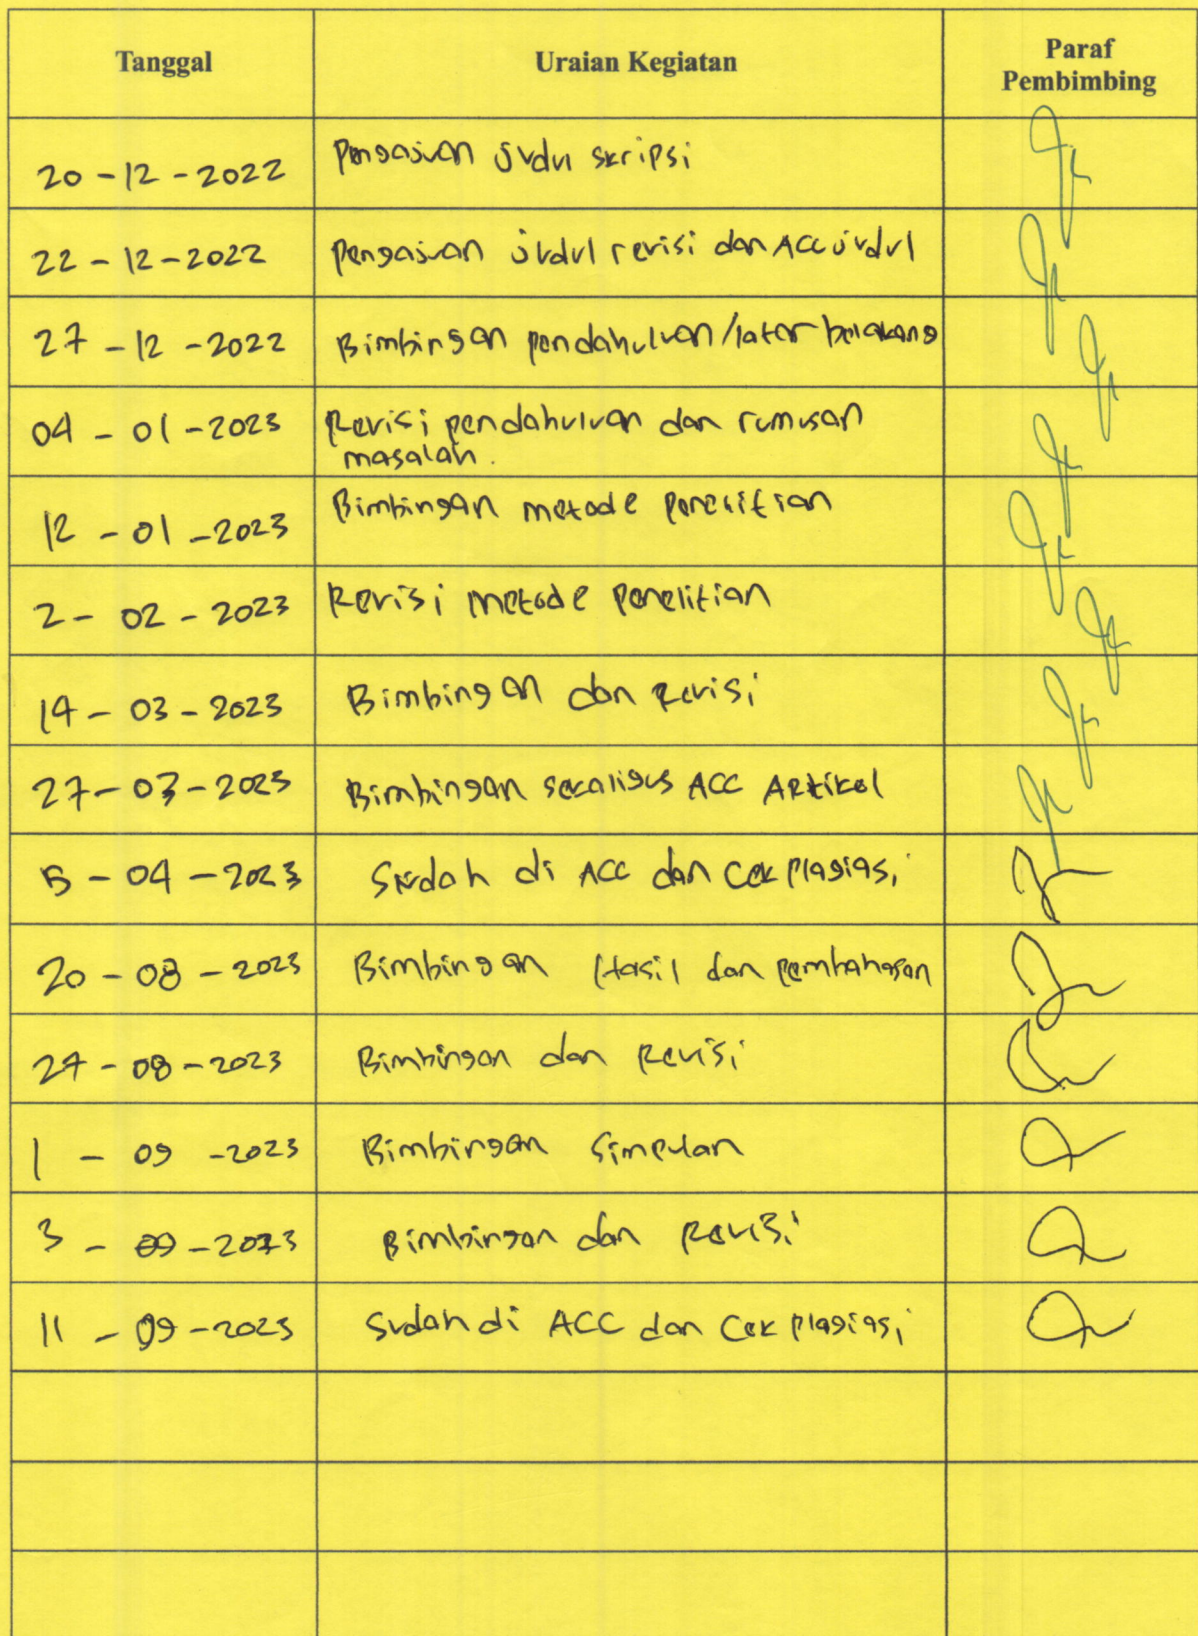 Tanggal Uraian Kegiatan Paraf
Pembimbing
20-12-2022 Pengajuan judul skripsi
22-12-2022 Pengajuan judul revisi dan ACC judul
27-12-2022 Bimbingan pendahuluan/latar belakang
04-01-2023 Revisi pendahuluan dan rumusan
masalah.
12-01-2023 Bimbingan metode penelitian
2-02-2023 Revisi metode penelitian
14-03-2023 Bimbingan dan Revisi
27-03-2023 Bimbingan sekaligus ACC Artikel
5-04-2023 Sudah di ACC dan Cek plagiasi
20-08-2023 Bimbingan Hasil dan pembahasan
27-08-2023 Bimbingan dan Revisi
1-09-2023 Bimbingan Simpulan
3-09-2023 Bimbingan dan Revisi
11-09-2023 Sudah di ACC dan Cek plagiasi